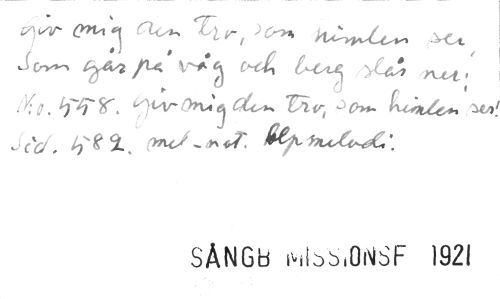 Giv mig den tro, som himlen ser,
Som går på våg och berg slår ner:
N:o. 558. Giv mig den tro, som himlen ser!
Sid. 582. mel-not. melodi.
SÅNGB MISSIONSF 1921